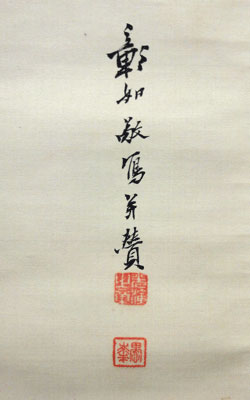 彰如敬寫并贊